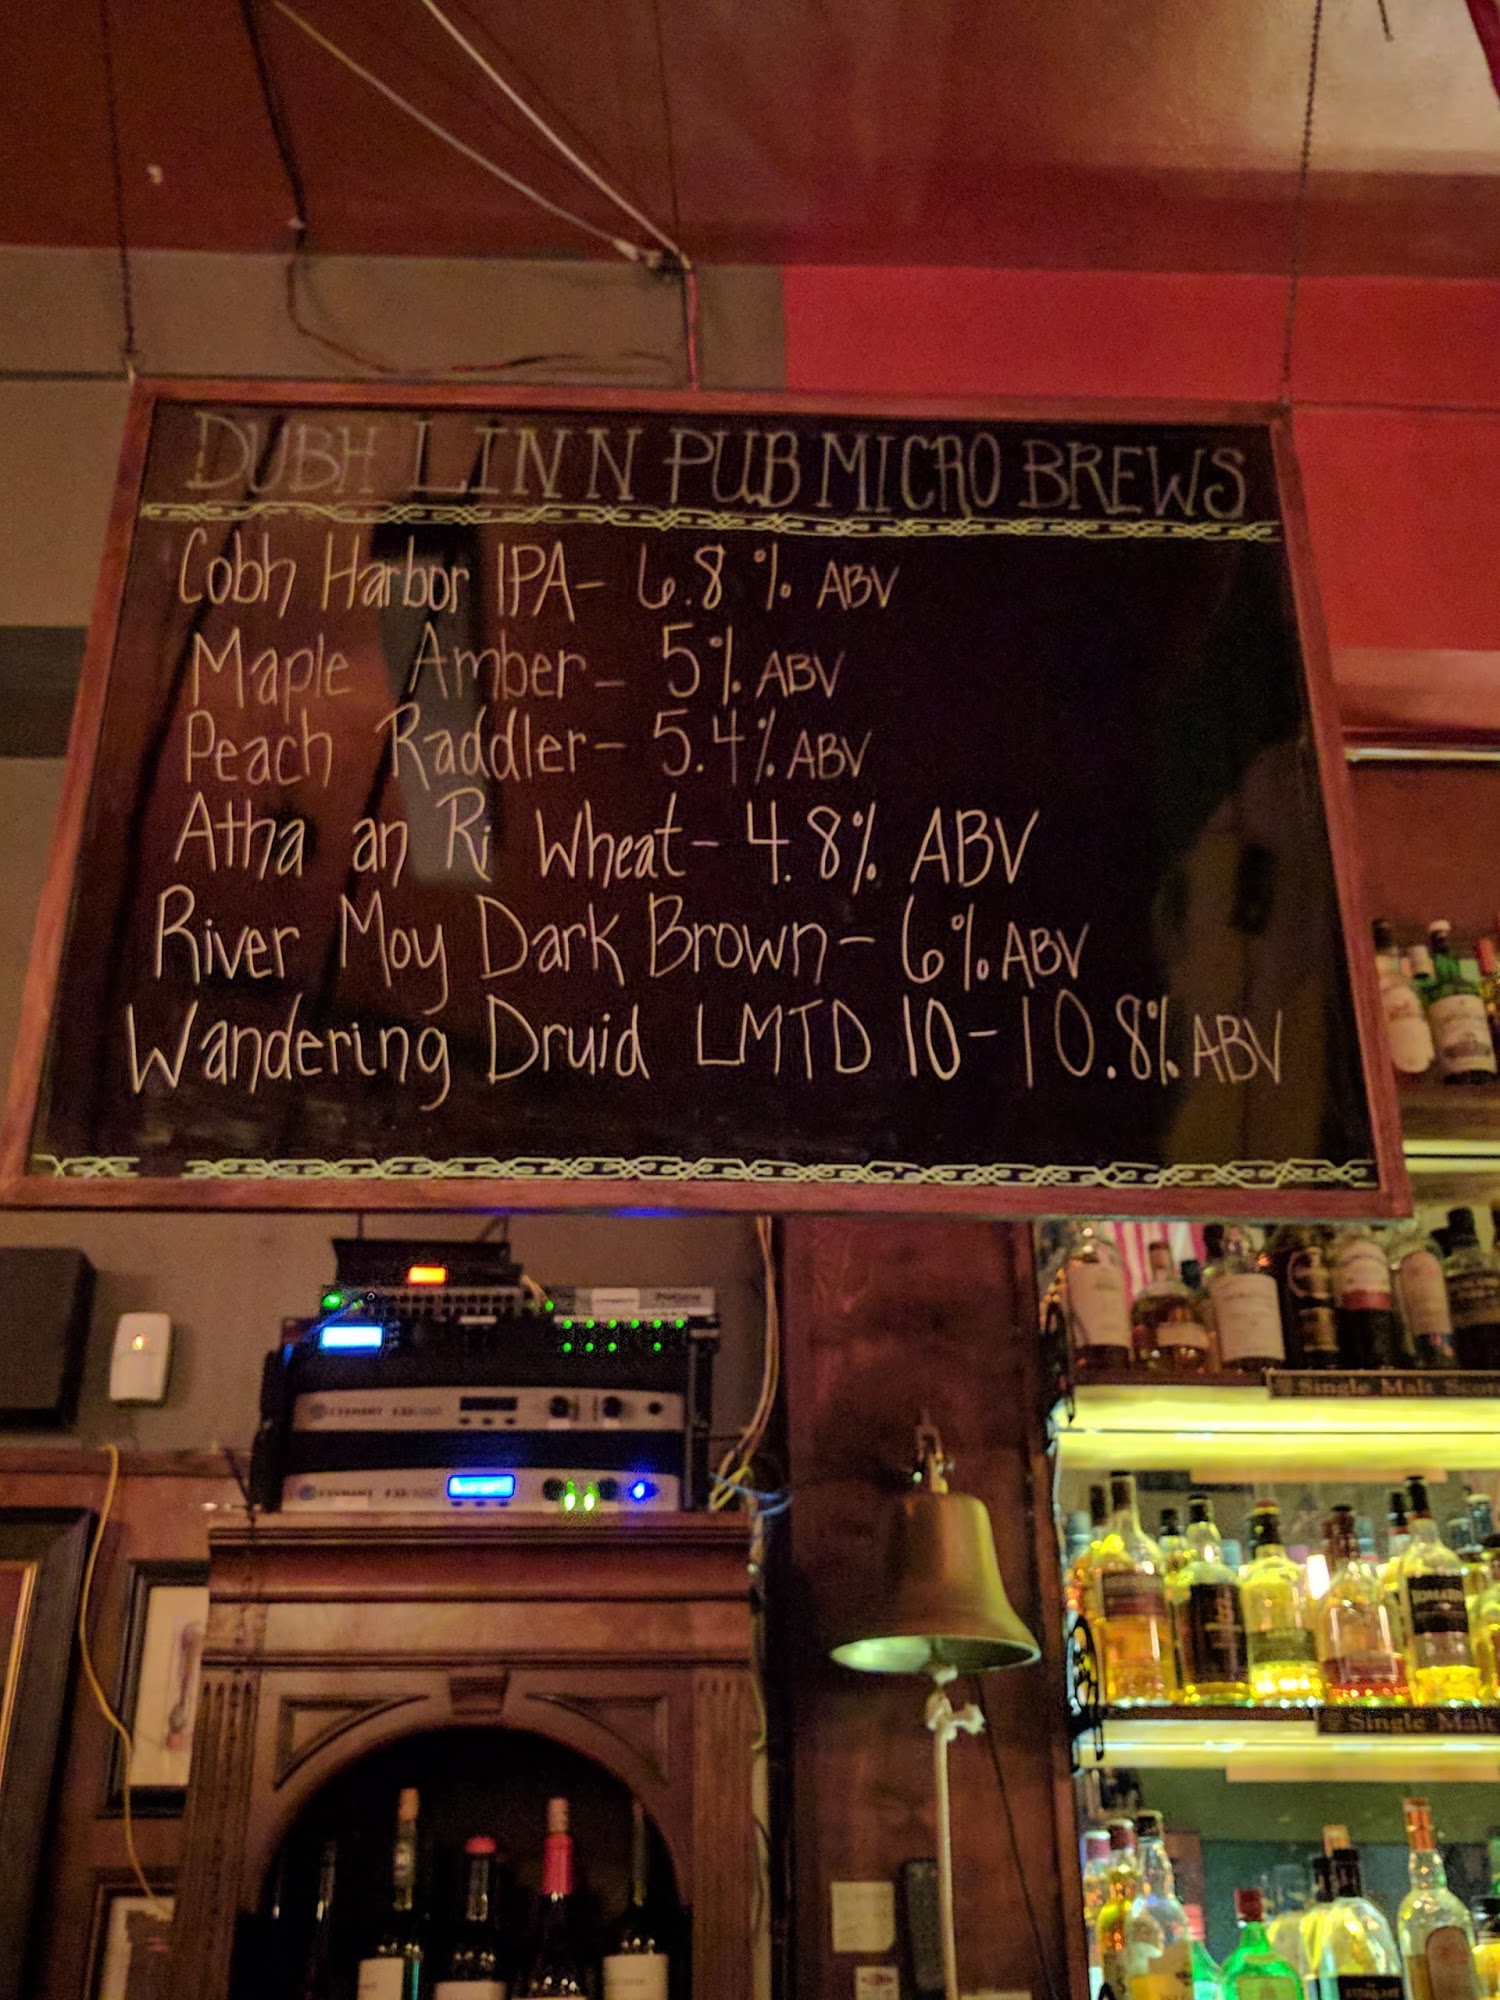 DUBH LINN PUB MICRO BREWS
Cobh Harbor IPA- 6.8% ABV
Maple Amber- 5% ABV
Peach Raddler- 5.4% ABV
Atha an Ri Wheat- 4.8% ABV
River Moy Dark Brown- 6% ABV
Wandering Druid LMTD 10-10.8% ABV
Single Malt
Single Malt